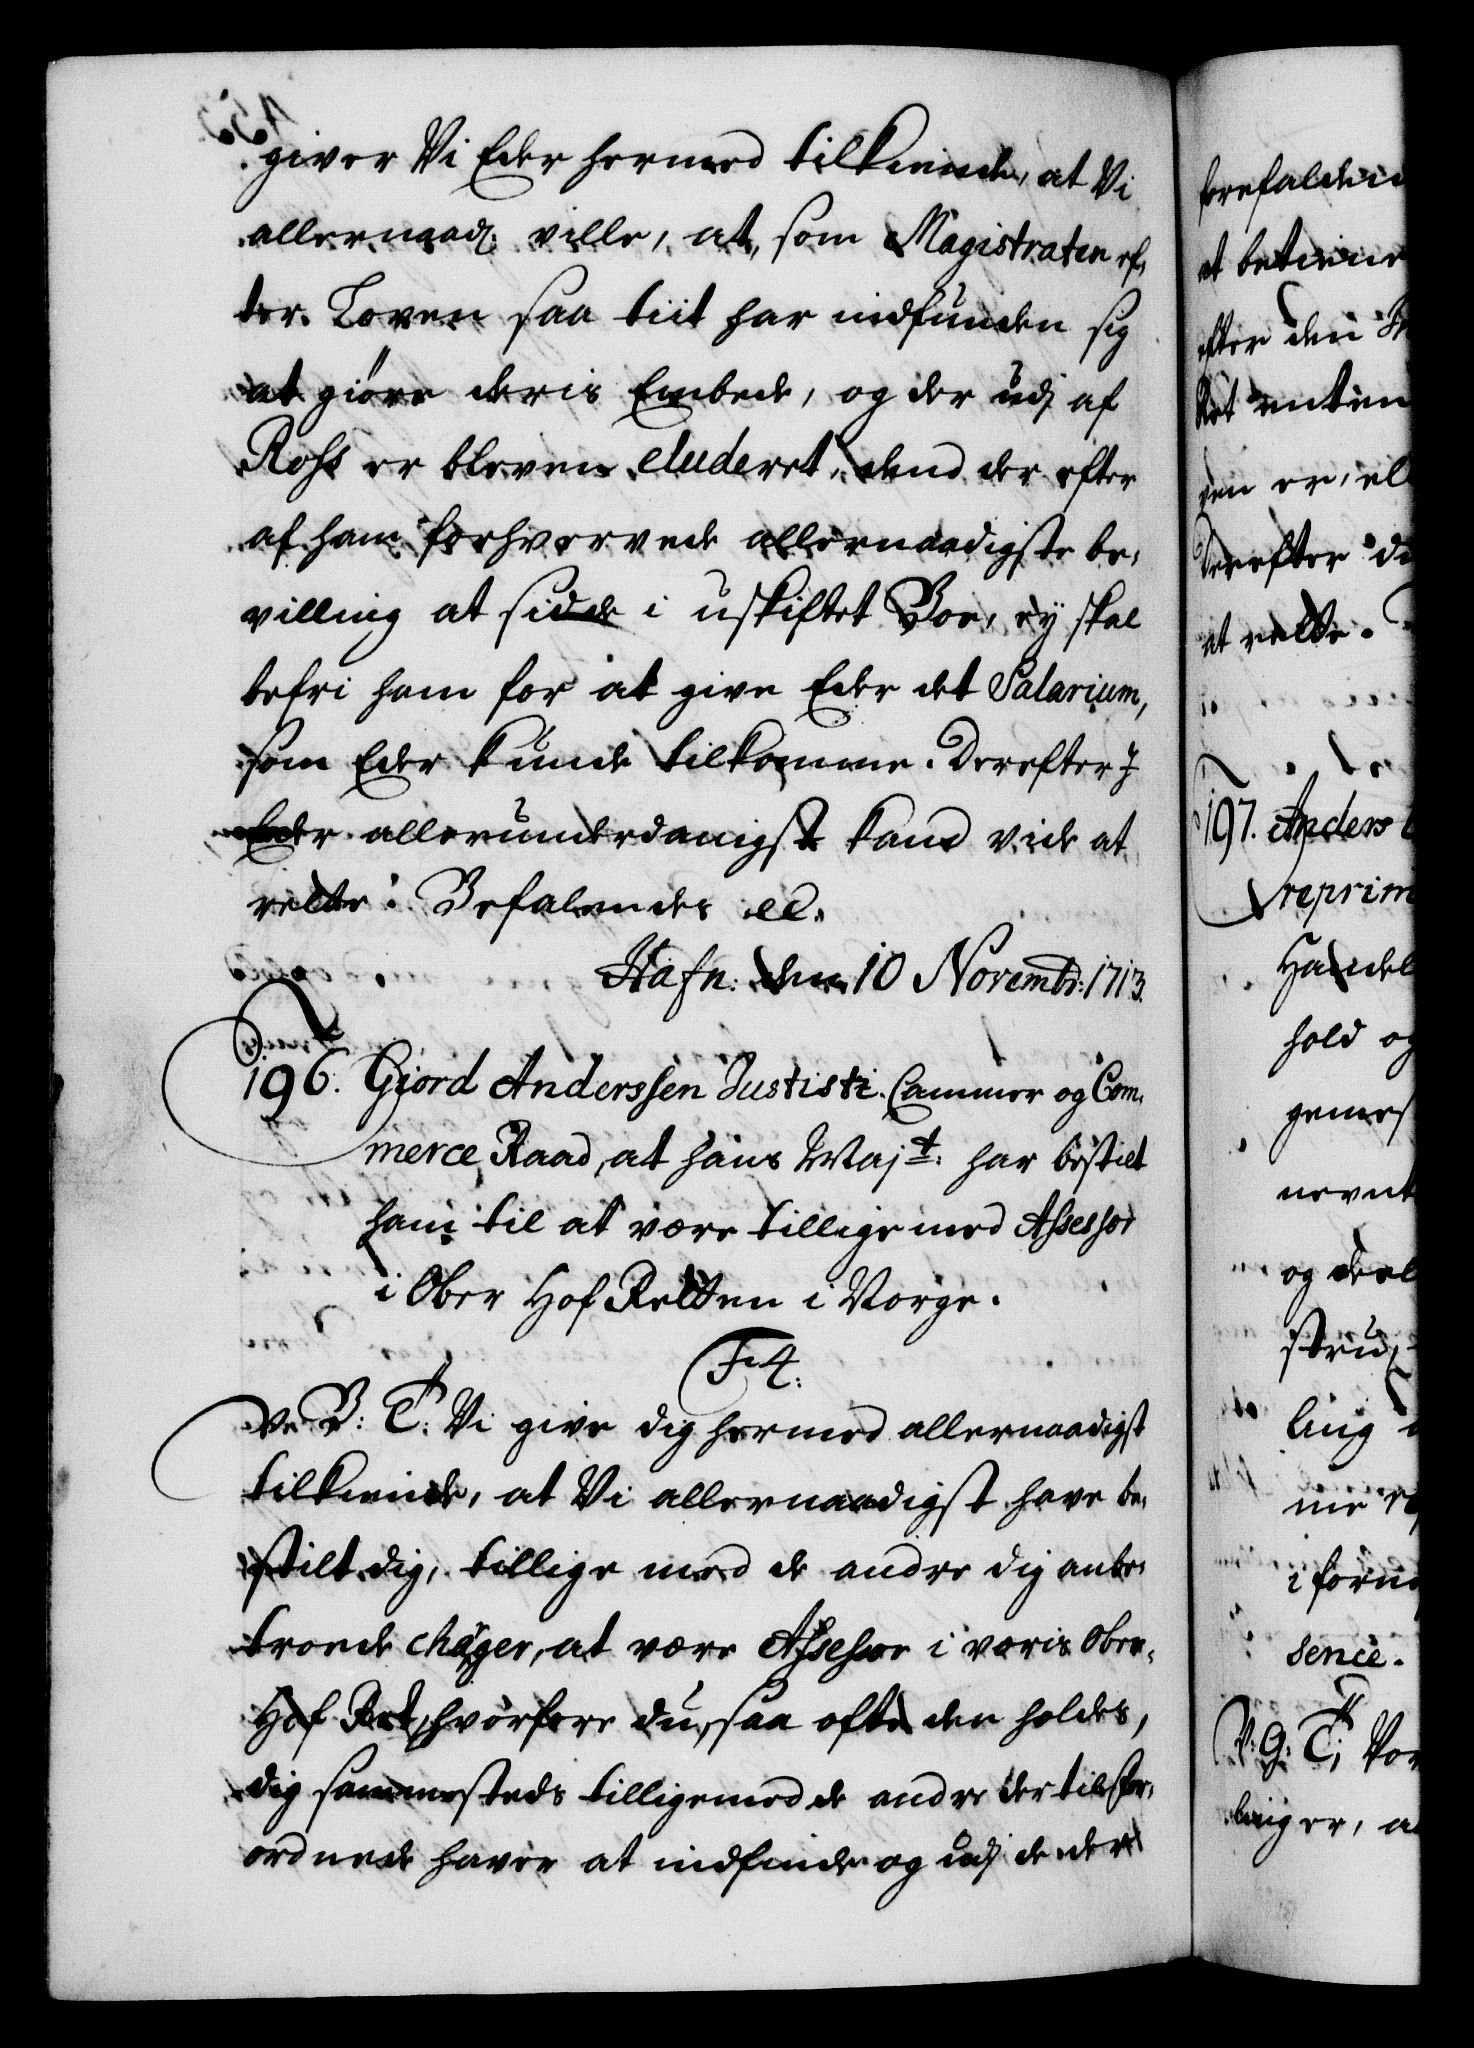 giver Vi Eder hermed tilkiende, at Vi
allernaad: ville, at, som Magistraten ef,
ter Loven saa tiit har indfunden sig
at giöre deris Embede, og der udj af
Rohs er bleven eluderet, dend der efter
af ham forhvervede allernaadigste be,
villing at sidde i uskiftet Boe, ey skal
befri ham for at give Eder det Salarium,
som Eder kunde tilkomme. Derefter I
Eder allerunderdanigst kand vide at
rette. Befalendes etc.
Hafn: den 10 Novembr: 1713.
196. Giord Anderssen Justisti. Cammer og Com,
merce Raad, at hans Maj<sup>t</sup>: har bestilt
ham til at være tillige med Assessor
i Ober Hof Retten i Norge.
F 4:
V: B: T: Vi give dig hermed allernaadigst
tilkiende, at Vi allernaadigst have be,
stilt dig, tillige med de andre dig anbe,
troede charger, at være Assessor i voris Ober,
Hof Ret, hvorfore du, saa ofte den holdes,
dig sammesteds tilligemed de andre dertil for,
ordnede haver at indfinde og udj de der
forefalden
at betiene
efter den
Ret enten
ven er, el
Derefter du
at rette.
197. Anders
reprim
Handel
hold og
gemes
nevnt
og deel
stru,
ling
me
i forn
sence.
V: G: T: Vor
linger, at